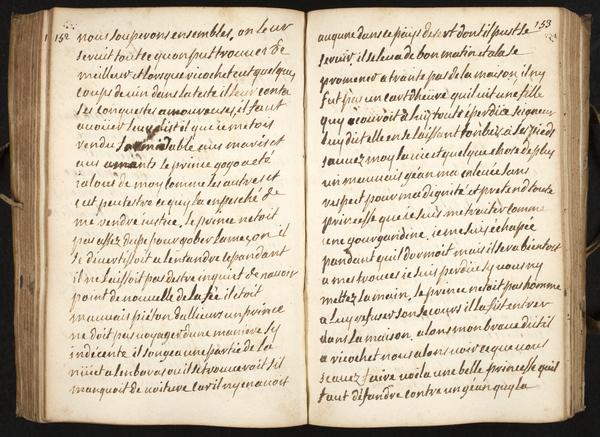 152
nous souperons ensembles, on leur
servit tout ce quon put trouver de
meilleur et lorsque ricochet eut quelques
coups de vin dans la teste il leur conta
ses conquestes amoureuses, il faut
avoüer leur dit il que ie metois
rendu formidable aux maris et
aux amants le prince gogo a eté
ialoux de moy comme les autres et
cest peutestre ce qui la enpeché de
me rendre justice. le prince netoit
pas assez dupe pour gober lameçon il
se divertissoit a lentandre cepandant
il ne laissoit pas destre inquiet de navoir
point de nouvelle de la fée il etoit
mauvais piéton dallieurs un prince
ne doit pas voyager dune maniere sy
indécente il songea une partie de la
nuict a lenbaras ou il se trouveroit sil
manquoit de voiture car il ny en avoit
153
aucune dans ce païs desert dont il pust se
servir, il se leva de bon matin et ala se
promener a trante pas de la maison, il ny
fut pas un cart dheure quil vit une fille
quy acouroit a luy toute éperdüe seigneur
luy dit elle en se laissant tonber a ses pieds
sauvez moy la vie et quelque chose de plus
un mauvais géan ma enlevée sans
respect pour ma dignité et pretend toute
princesse que ie suis me traiter comme
une gourgandine. ie me suis echapée
pandant quil dormoit mais il sera bientost
a mes trousses ie suis perdüe sy vous ny
mettez la main. le prince netoit pas homme
a luy refuser son secours il la fit entrer
dans la maison. alons mon brave dit il
a ricochet nous alons voir ce que vous
scavez faire voila une belle princesse quil
faut défandre contre un géan quy la